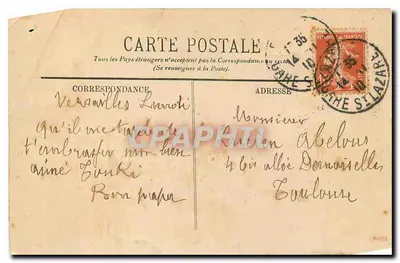 CARTE POSTALE
Tous les Pays étrangers n'acceptent pas la Correspondance au recto
(Se renseigner à la Poste).
CORRESPONDANCE
ADRESSE
Versailles Lundi
qu'il me tarde de
t'embrasser mon bien
aimé
Bon papa
Monsieur
Lucien Abelous
4 bis allée Demoiselles
Toulouse
GARE ST LAZARE
GARE ST LAZARE
CPAPHIL